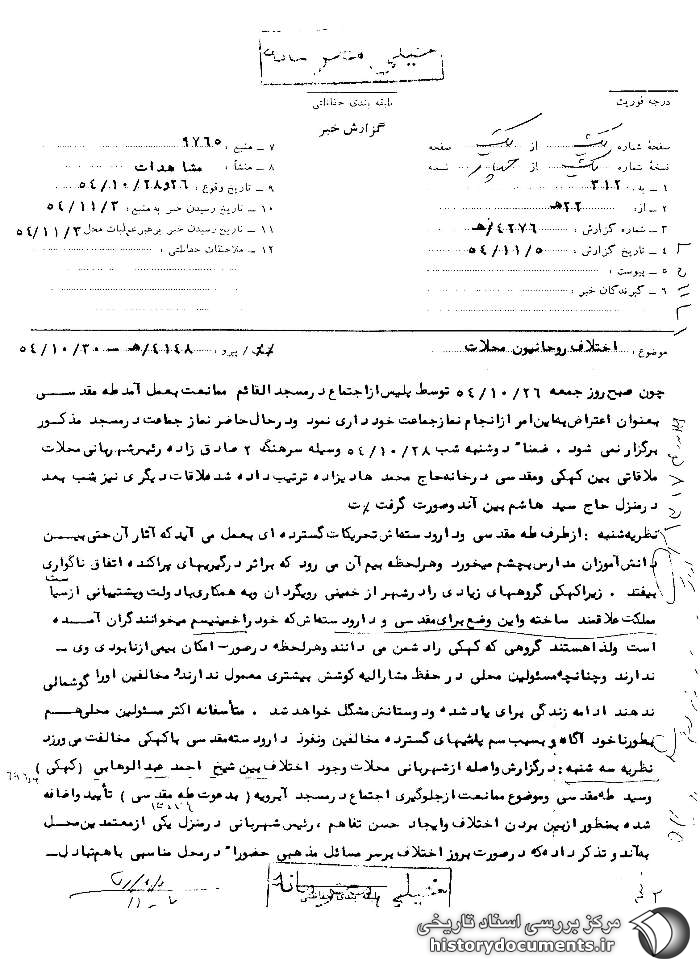 خیلی محرمانه
درجه فوریت
طبقه بندی حفاظتی
گزارش خبر
صفحهٔ شماره یک از یک صفحه
نسخهٔ شماره یک از چهار نسخه
۱ ــ به: ۳۱۲
۲ ــ از: ۲۲هـ
۳ ــ شماره گزارش: ۴۲۷۶/هـ
۴ ــ تاریخ گزارش: ۵۴/۱۱/۵
۵ ــ پیوست:
۶ ــ گیرندگان خبر:
۷ ــ منبع: ۹۷۶۵
۸ ــ منشأ: مشاهدات
۹ ــ تاریخ وقوع: ۲۶و۵۴/۱۰/۲۸
۱۰ ــ تاریخ رسیدن خبر به منبع: ۵۴/۱۱/۳
۱۱ ــ تاریخ رسیدن خبر برهبر عملیات محل: ۵۴/۱۱/۳
۱۲ ــ ملاحظات حفاظتی:
موضوع: اختلاف روحانیون محلات
/ پیرو: ۴۱۴۸/هـ ــ ۵۴/۱۰/۳۰
چون صبح روز جمعه ۵۴/۱۰/۲۶ توسط پلیس از اجتماع در مسجد القائم ممانعت بعمل آمد طه مقدسی
بعنوان اعتراض به این امر از انجام نماز جماعت خودداری نمود ودر حال حاضر نماز جماعت در مسجد مذکور
برگزار نمی شود . ضمناً دوشنبه شب ۵۴/۱۰/۲۸ وسیله سرهنگ ۲ صادق زاده رئیس شهربانی محلات
ملاقاتی بین کهکی ومقدسی در خانه حاج محمد هادیزاده ترتیب داده شد ملاقات دیگری نیز شب بعد
در منزل حاج سید هاشم بین آندو صورت گرفت
نظریه شنبه : از طرف طه مقدسی ودارودسته اش تحریکات گسترده ای بعمل می آید که آثار آن حتی بیـن
دانش آموزان مدارس بچشم میخورد وهر لحظه بیم آن می رود که براثر درگیریهای پراکنده اتفاق ناگواری
بیفتد . زیرا کهکی گروههای زیادی را در شهر از خمینی رویگردان وبه همکاری با دولت وپشتیبانی از سیاست
مملکت علاقمند ساخته واین وضع برای مقدسی و دارودسته اش که خود را خمینیسم میخوانند گران آمـده
است ولذا هستند گروهی که کهکی را دشمن می دانند وهر لحظه در صورت امکان بیمی از نابودی وی ــ
ندارند وچنانچه مسئولین محلی در حفظ مشارالیه کوشش بیشتری معمول ندارند و مخالفین او را گوشمالی
ندهند ادامه زندگی برای یاد شده ودوستانش مشگل خواهد شد . متأسفانه اکثر مسئولین محلی هـم
بطور ناخودآگاه و بسبب سم پاشیهای گسترده مخالفین ونفوذ دارودسته مقدسی با کهکی مخالفت می ورزد
نظریه سه شنبه : در گزارش واصله از شهربانی محلات وجود اختلاف بین شیخ احمد عبدالوهابی (کهکی)
وسید طه مقدسی وموضوع ممانعت از جلوگیری اجتماع در مسجد آبرویه (بدعوت طه مقدسی) تأیید واضافه
شده بمنظور ازبین بردن اختلاف وایجاد حسن تفاهم ، رئیس شهربانی در منزل یکی از معتمدین محل
به آندو تذکر داده که در صورت بروز اختلاف بر سر مسائل مذهبی حضوراً در محل مناسبی باهم تبادل ــ
خیلی محرمانه
طبقه بندی حفاظتی
مرکز بررسی اسناد تاریخی
historydocuments.ir